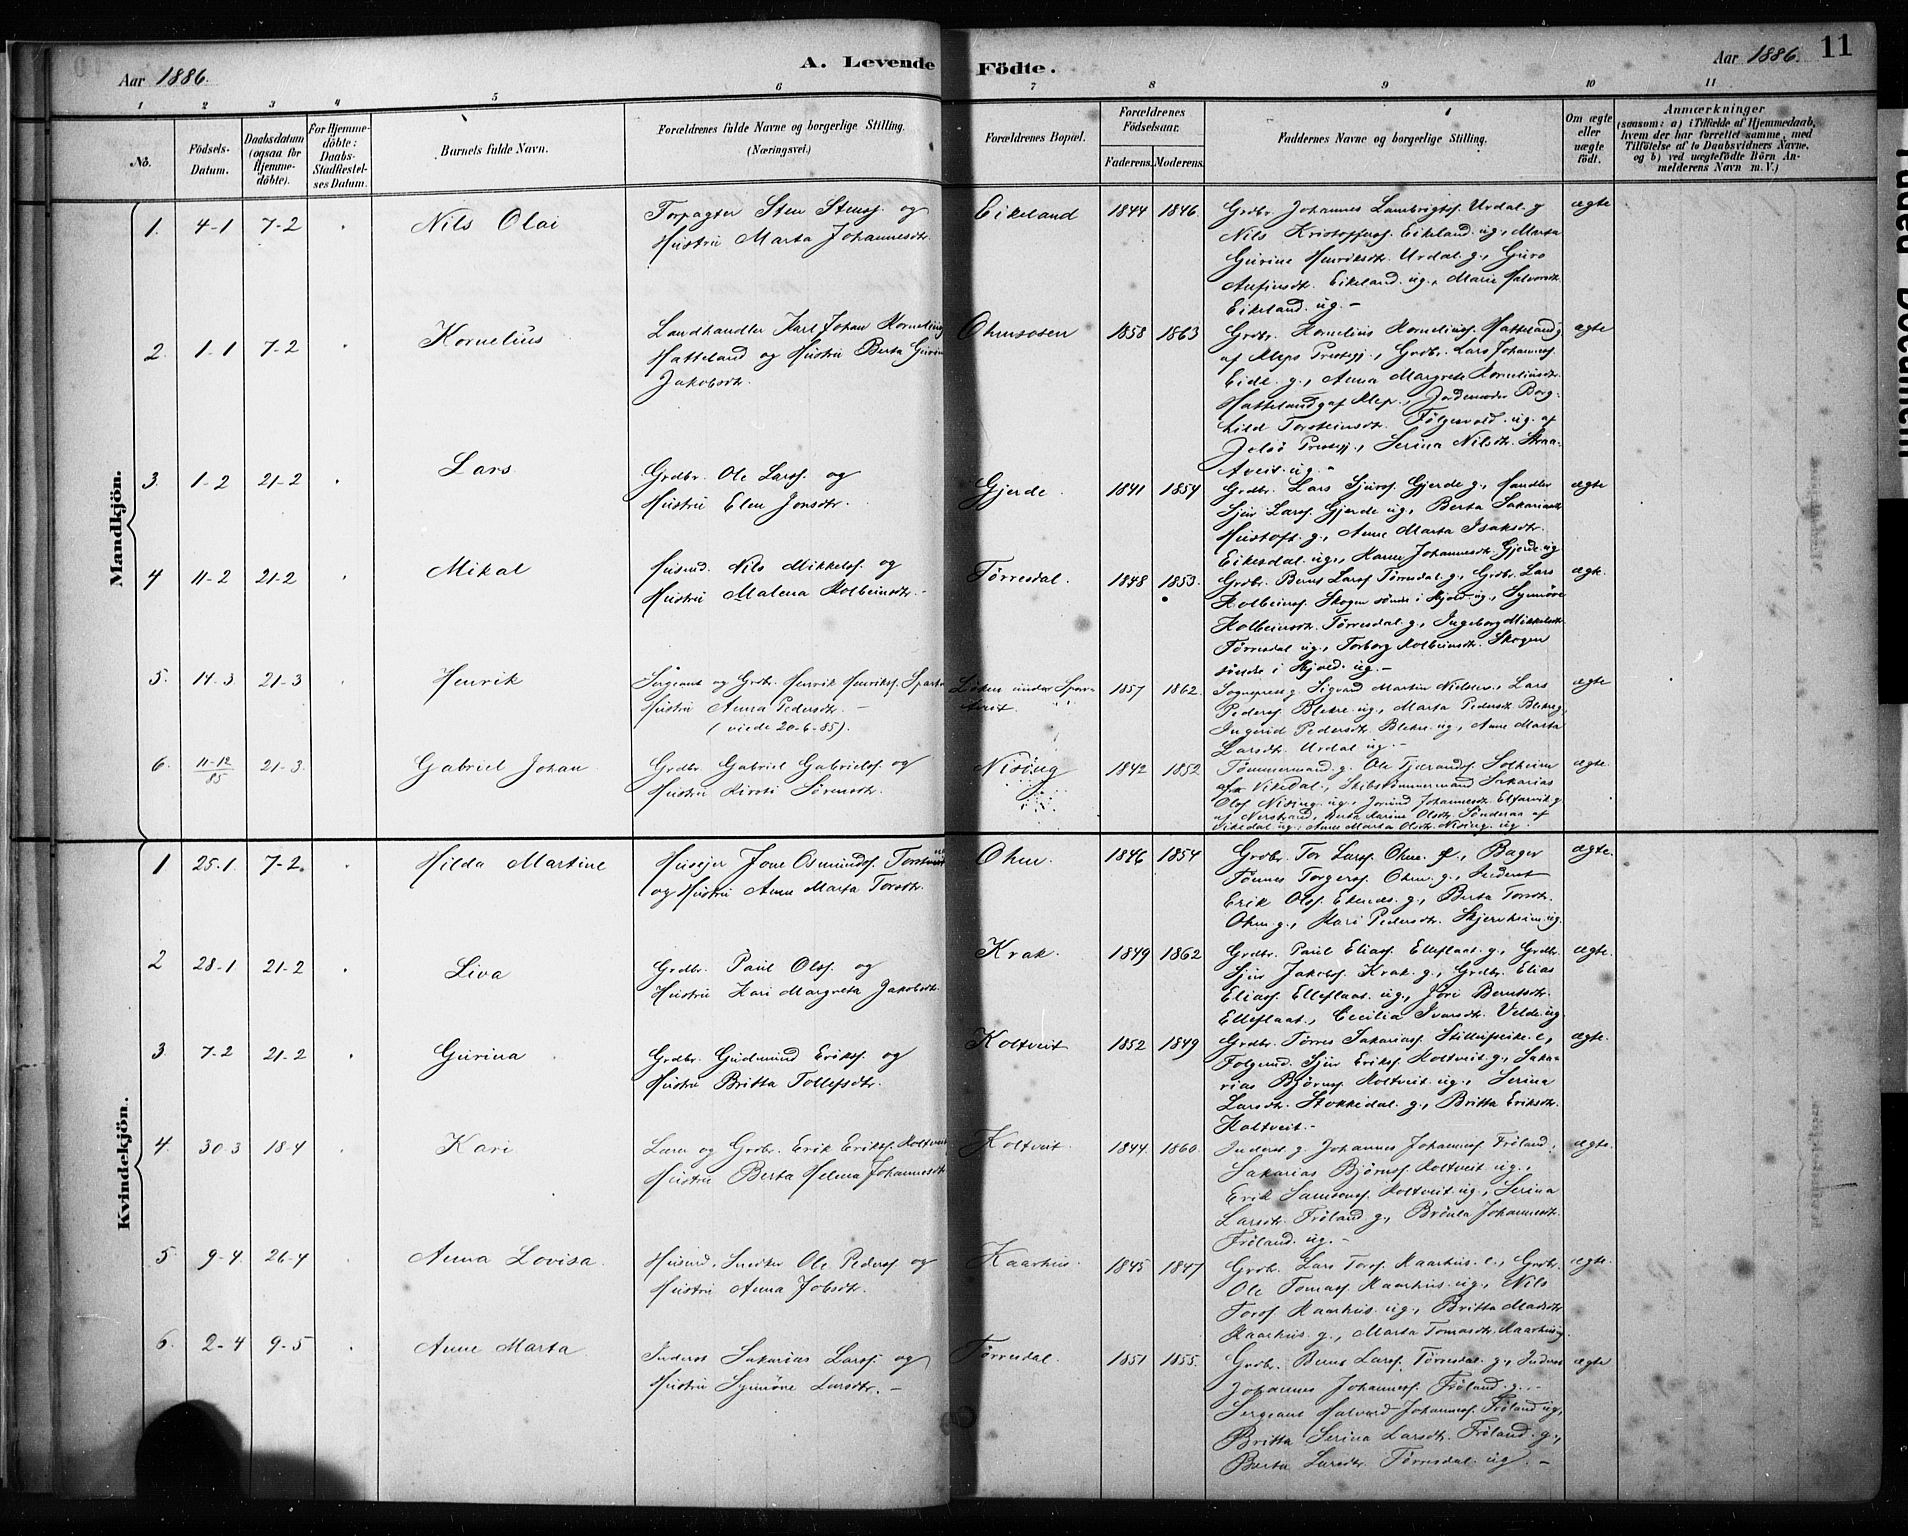 Aar 1886.
A. Levende Födte.
Aar 1886.
11
1 2 3 4 5 6 7 8 9 10 11
No.
Födsels-Datum.
Daabsdatum (ogsaa for Hjemme-döbte).
For Hjemme-döbte: Daabs-Stadfæstel-ses Datum.
Barnets fulde Navn.
Forældrenes fulde Navne og borgerlige Stilling.
(Næringsvei.)
Forældrenes Bopæl.
Forældrenes Födselsaar.
Faderens. Moderens.
Faddernes Navne og borgerlige Stilling.
Om ægte eller uægte födt.
Anmærkninger
(saasom: a) i Tilfælde af Hjemmedaab,
hvem der har forrettet samme, med
Tilföielse af to Daabsvidners Navne,
og b) ved uægtefödte Börn An-
melderens Navn m. V.)
Mandkjön.
1. 4-1 7-2 Nils Olai
Torpagter Sten Stens. og
Hustru Marta Johannesdtr.
Eikeland 1844 1846.
Grdbr. Johannes Lambrigts. Urdal g
Nils Kristoffers. Eikeland ug., Marta
Gurine Henriksdtr. Urdal g., Guro
Anfinsdtr. Eikeland ug., Marie Halvorsdtr.
Eikeland ug. -
ægte
2. 1-1 7-2 Kornelius
Landhandler Karl Johan Kornelius
Hatteland og Hustru Berta Gurine
Jakobsdtr.
Ølensosen 1858 1863
Grdbr. Kornelius Korneliuss. Hatteland g
af Kleps Prestegj., Grdbr. Lars Johanness.
Eide g., Anna Margrete Korneliusdtr.
Hatteland g af Klep., Jordemoder Borg-
hild Torsteinsdtr. ug. af
Jelsø Prestegj., Serina Nilsdtr. Straa-
tveit ug. -
ægte
3. 1-2 21-2 Lars
Grdbr. Ole Larss. og
Hustru Elen Jonsdtr.
Gjerde. 1841 1854
Grdbr. Lars Sjurs. Gjerde g., Handler
Sjur Larss. Gjerde ug., Berta Sakariasdtr.
Hustoft g., Anne Marta Isaksdtr.
Eikesdal ug., Karen Johannesdtr. Gjerde ug
ægte
4 11-2 21-2 Mikal
Husmd. Nils Mikkels. og
Hustru Malena Kolbeinsdtr. -
Tørresdal. 1848 1853.
Grdbr. Bernt Larss. Tørresdal g., Grdbr. Lars
Kolbeins. Skogen søndre i Skjold ug., Synnøve
Kolbeinsdtr. Tørresdal g., Ingeborg Mikkelsdtr.
Tørresdal ug., Torborg Kolbeinsdtr. Skogen
søndre i Skjold ug. -
ægte.
5. 14-3 21-3 Henrik
Sergeant og Grdbr. Henrik Henriks.
Hustru Anna Pedersdtr. -
(viede 20-6-85).
under
1857 1862.
Sogneprest g. Sigvard Martin Nielsen., Lars
Peders. Blikre ug., Marta Pedersdtr. Blikre g,
Ingerid Pedersdtr. Blikre ug., Anne Marta
Larsdtr. Urdal ug. -
ægte
6. 11-12/85 21-3. Gabriel Johan
Grdbr. Gabriel Gabriels. og
Hustru Kirsti Sørensdtr.
Nising 1842 1852
Tømmermand g. Ole Tjerands. Solheim
af Vikedal., Skibstømmermand Sakarias
Ols. Nising ug., Johannesdtr. g.
af Nerstrand, Berta Karine Olsdtr. Sønderaa af
Vikedal ug., Anne Marta Olsdtr. Nising ug.
ægte.
Kvindekjön.
1 25-1. 7-2. Hilda Martine
Husejer Jone Osmunds. Torstveit
og Hustru Anne Marta Torsdtr.
Ølen. 1846 1854
Grdbr. Tor Larss. Ølen g., Bager
Tønnes Torgers. Ølen g., Inderst
Erik Ols. Ekenes g., Berta Torsdtr.
Ølen g., Kari Pedersdtr. Skjernheim ug.
ægte.
2 28-1 21-2 Liva
Grdbr. Paul Ols. og
Hustru Kari Margreta Jakobsdtr.
Krak. 1849 1862
Grdbr. Paul Elias. Elleflaat g., Grdbr.
Sjur Jakobs. Krak g., Grdbr. Elias
Elias. Elleflaat ug., Jori Berntsdtr.
Elleflaat., Cecilia Ivarsdtr. Velde ug.
ægte.
3. 7-2 21-2 Gurina
Grdbr. Gudmund Eriks. og
Hustru Britta Tollefsdtr.
Koltveit 1852 1849
Grdbr. Tørres Sakarias. e,
Folgemd. Sjur Eriks. Koltveit g., Saka-
rias Bjørns. Koltveit ug., Serina
Larsdtr. Stokkedal g., Britta Eriksdtr.
Koltveit. -
ægte.
4. 30-3 18-4 Kari
Lærer og Grdbr. Erik Eriks. Koltveit
Hustru Berta Helena Johannesdtr.
Koltveit. 1844. 1860.
Inderst g. Johannes Johanness. Frøland.,
Sakarias Bjørns. Koltveit ug.,
Erik Samsons. Koltveit ug., Serina
Larsdtr. Frøland g., Brønla Johannesdtr.
Frøland ug. -
ægte.
5. 9-4. 26-4 Anna Lovisa.
Husmd. Snedker Ole Peders. og
Hustru Anna Jobsdtr.
Kaarhus. 1845 1847
Grdb. Lars Tors. Kaarhus e., Grdbr.
Ole Tomas. Kaarhus ug., Nils
Tors. Kaarhus ug., Britta Madsdtr.
Kaarhus g., Marta Tomasdtr. Kaarhus ug.
ægte.
6. 2-4 9-5 Anne Marta
Inderst Sakarias Larss. og
Hustru Synnøve Larsdtr. -
Tørresdal. 1851 1855.
Grdbr. Bernt Larss. Tørresdal g., Inderst
Johannes Johanness. Frøland g. -
Sergeant Halvard Johanness. Frøland ug,
Britta Serina Larsdtr. Frøland g.,
Berta Larsdtr. Tørresdal ug -
ægte